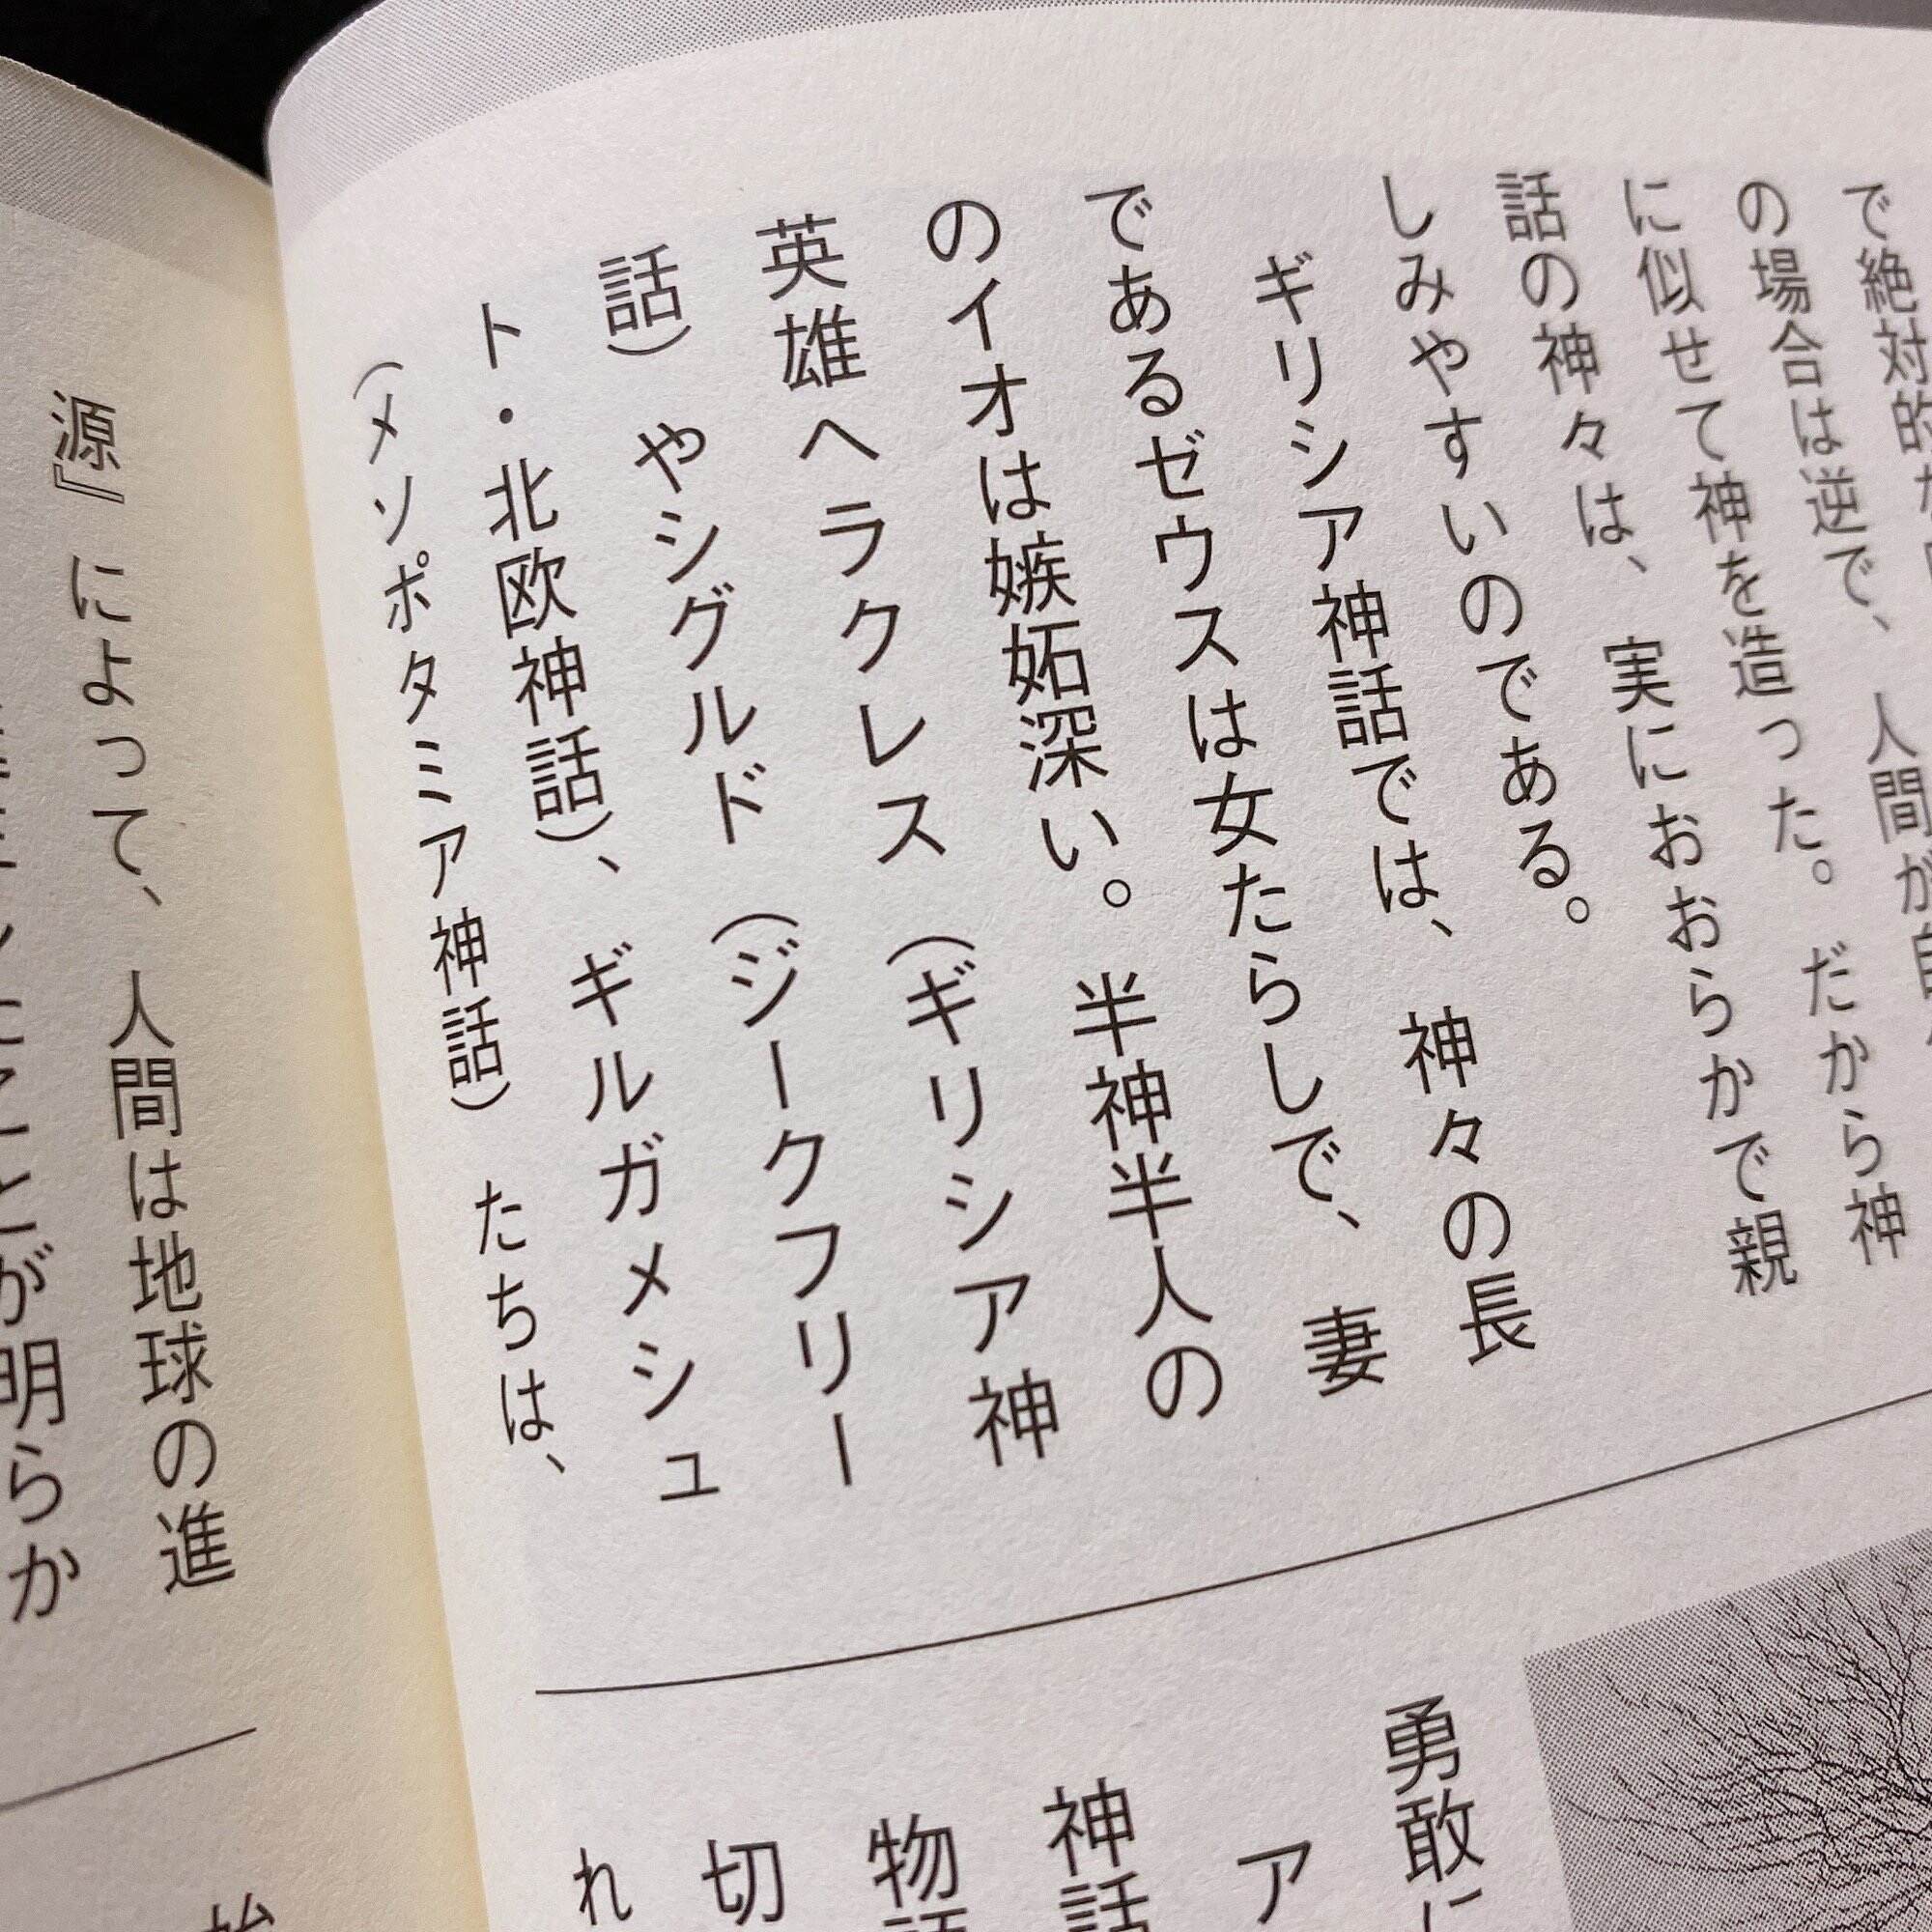 で絶対的な
の場合は逆で、人間が
に似せて神を造った。だから神
話の神々は、実におおらかで親
しみやすいのである。
ギリシア神話では、神々の長
であるゼウスは女たらしで、妻
のイオは嫉妬深い。半神半人の
英雄ヘラクレス（ギリシア神
話）やシグルド（ジークフリー
ト・北欧神話）、ギルガメシュ
（メソポタミア神話）たちは、
勇敢に
ア
神話
物語
切
れ
源』によって、人間は地球の進
が明らか